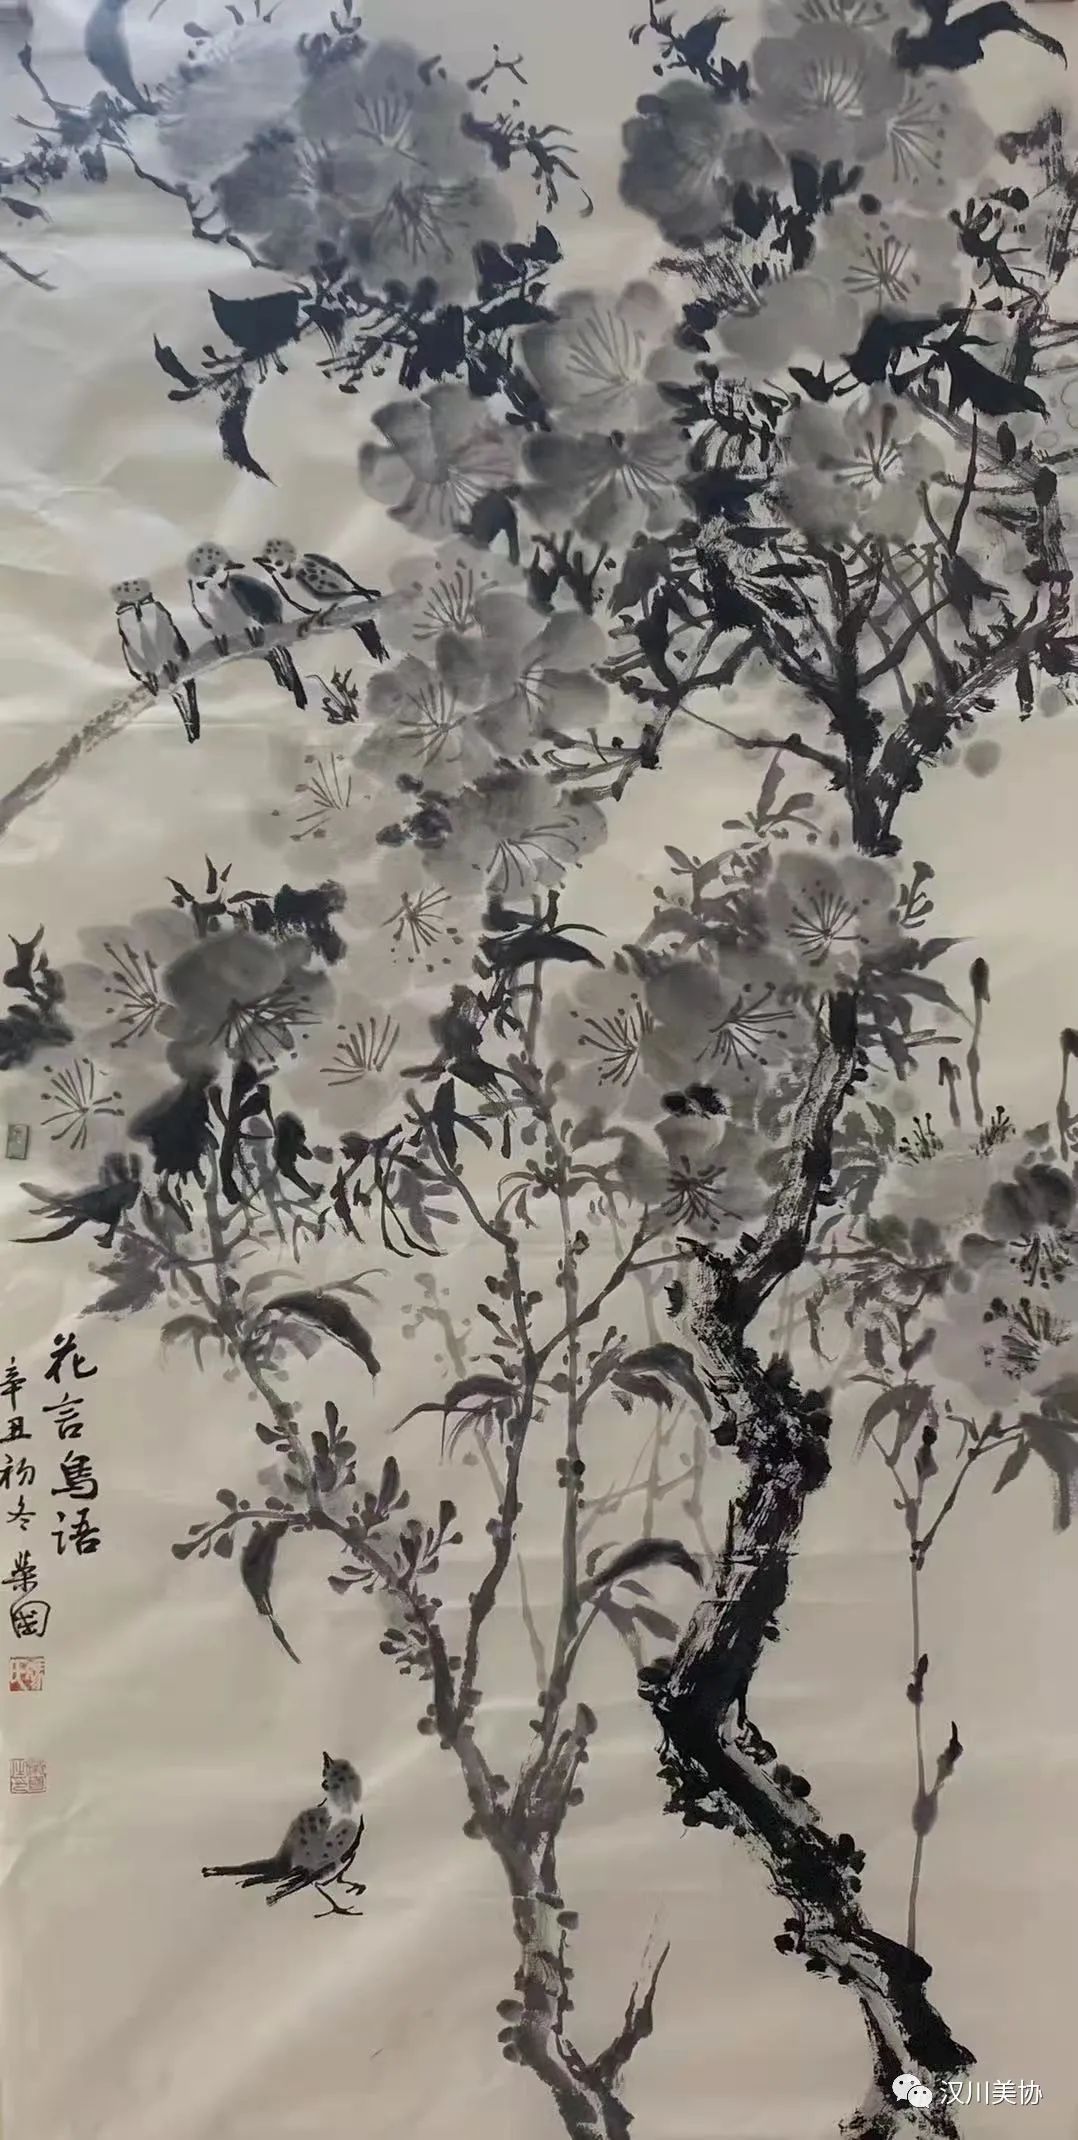 花言鸟语
辛丑初冬 荣国
汉川美协